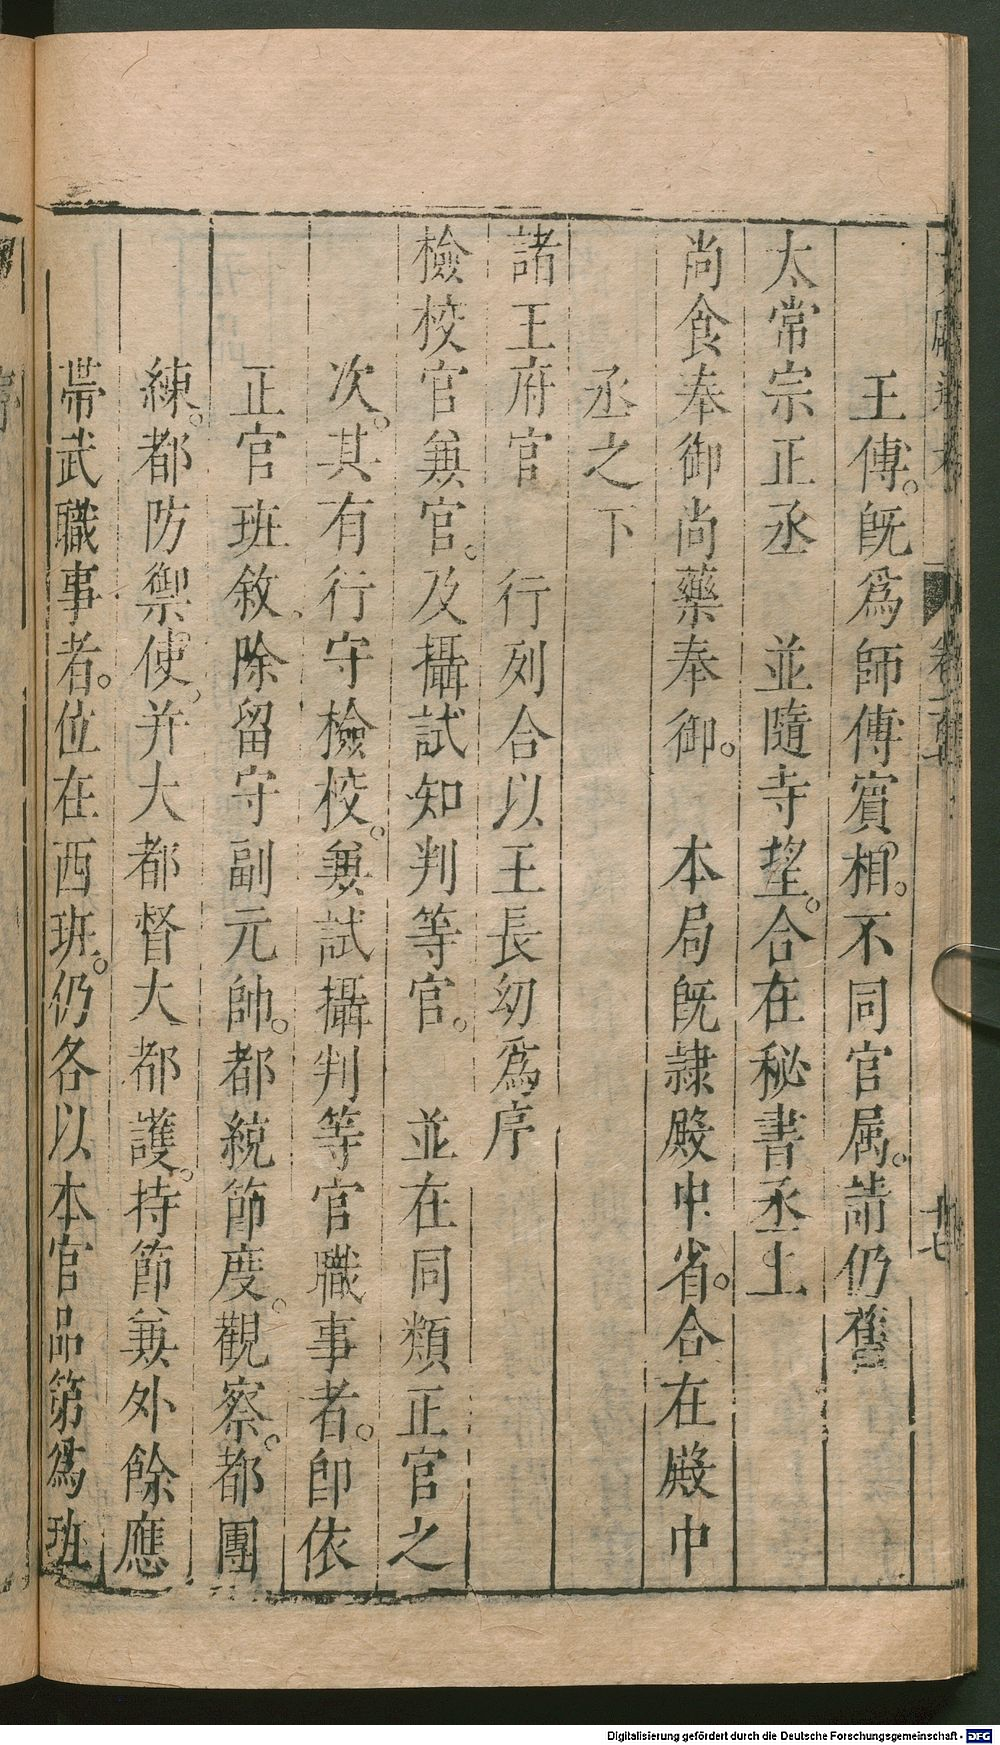 王傅。旣爲師傅賓相。不同官属。請仍舊
太常宗正丞　並隨寺望。合在秘書丞上
尚食奉御尚藥奉御。　本局旣隷殿中省。合在殿中
丞之下
諸王府官　行列合以王長幼爲序
檢校官兼官。及攝試知判等官。　並在同類正官之
次。其有行守檢校。兼試攝判等官職事者。卽依
正官班敘。除留守副元帥。都統節度。觀察。都團
練。都防禦使。并大都督大都護。持節兼外餘應
帶武職事者。位在西班。仍各以本官品第爲班
Digitalisierung gefördert durch die Deutsche Forschungsgemeinschaft - DFG